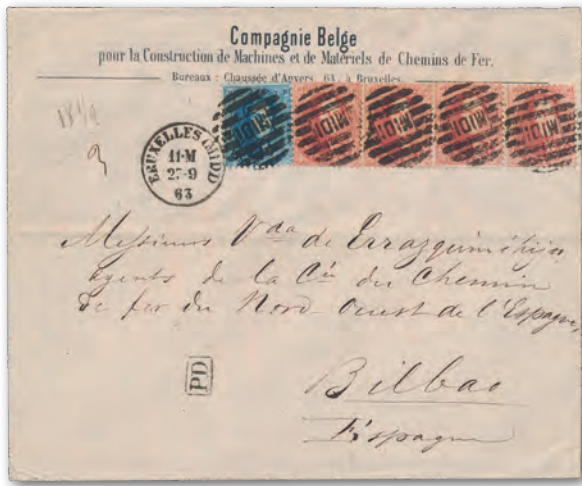 Compagnie Belge
pour la Construction de Machines et de Matériels de Chemins de Fer.
Bureaux : Chaussée d'Anvers, 64, à Bruxelles.
18 1/2
MIDI MIDI MIDI MIDI MIDI
BRUXELLES (MIDI)
11-M
25-9
63
Messieurs Vda de Errazquin é hijos
agents de la Cie du Chemin
de fer du Nord-Ouest de l'Espagne,
PD
Bilbao
Espagne